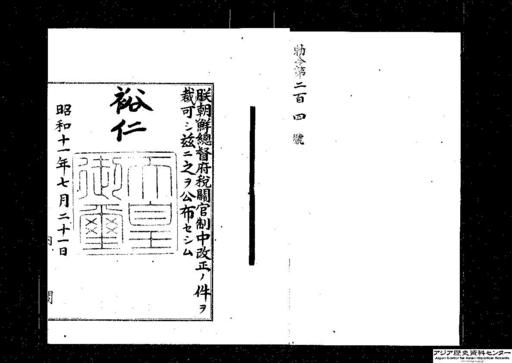 勅令第二百四號
朕朝鮮總督府稅關官制中改正ノ件ヲ
裁可シ茲ニ之ヲ公布セシム
裕仁
天皇
御璽
昭和十一年七月二十一日
内閣
アジア歴史資料センター
Japan Center for Asian Historical Records